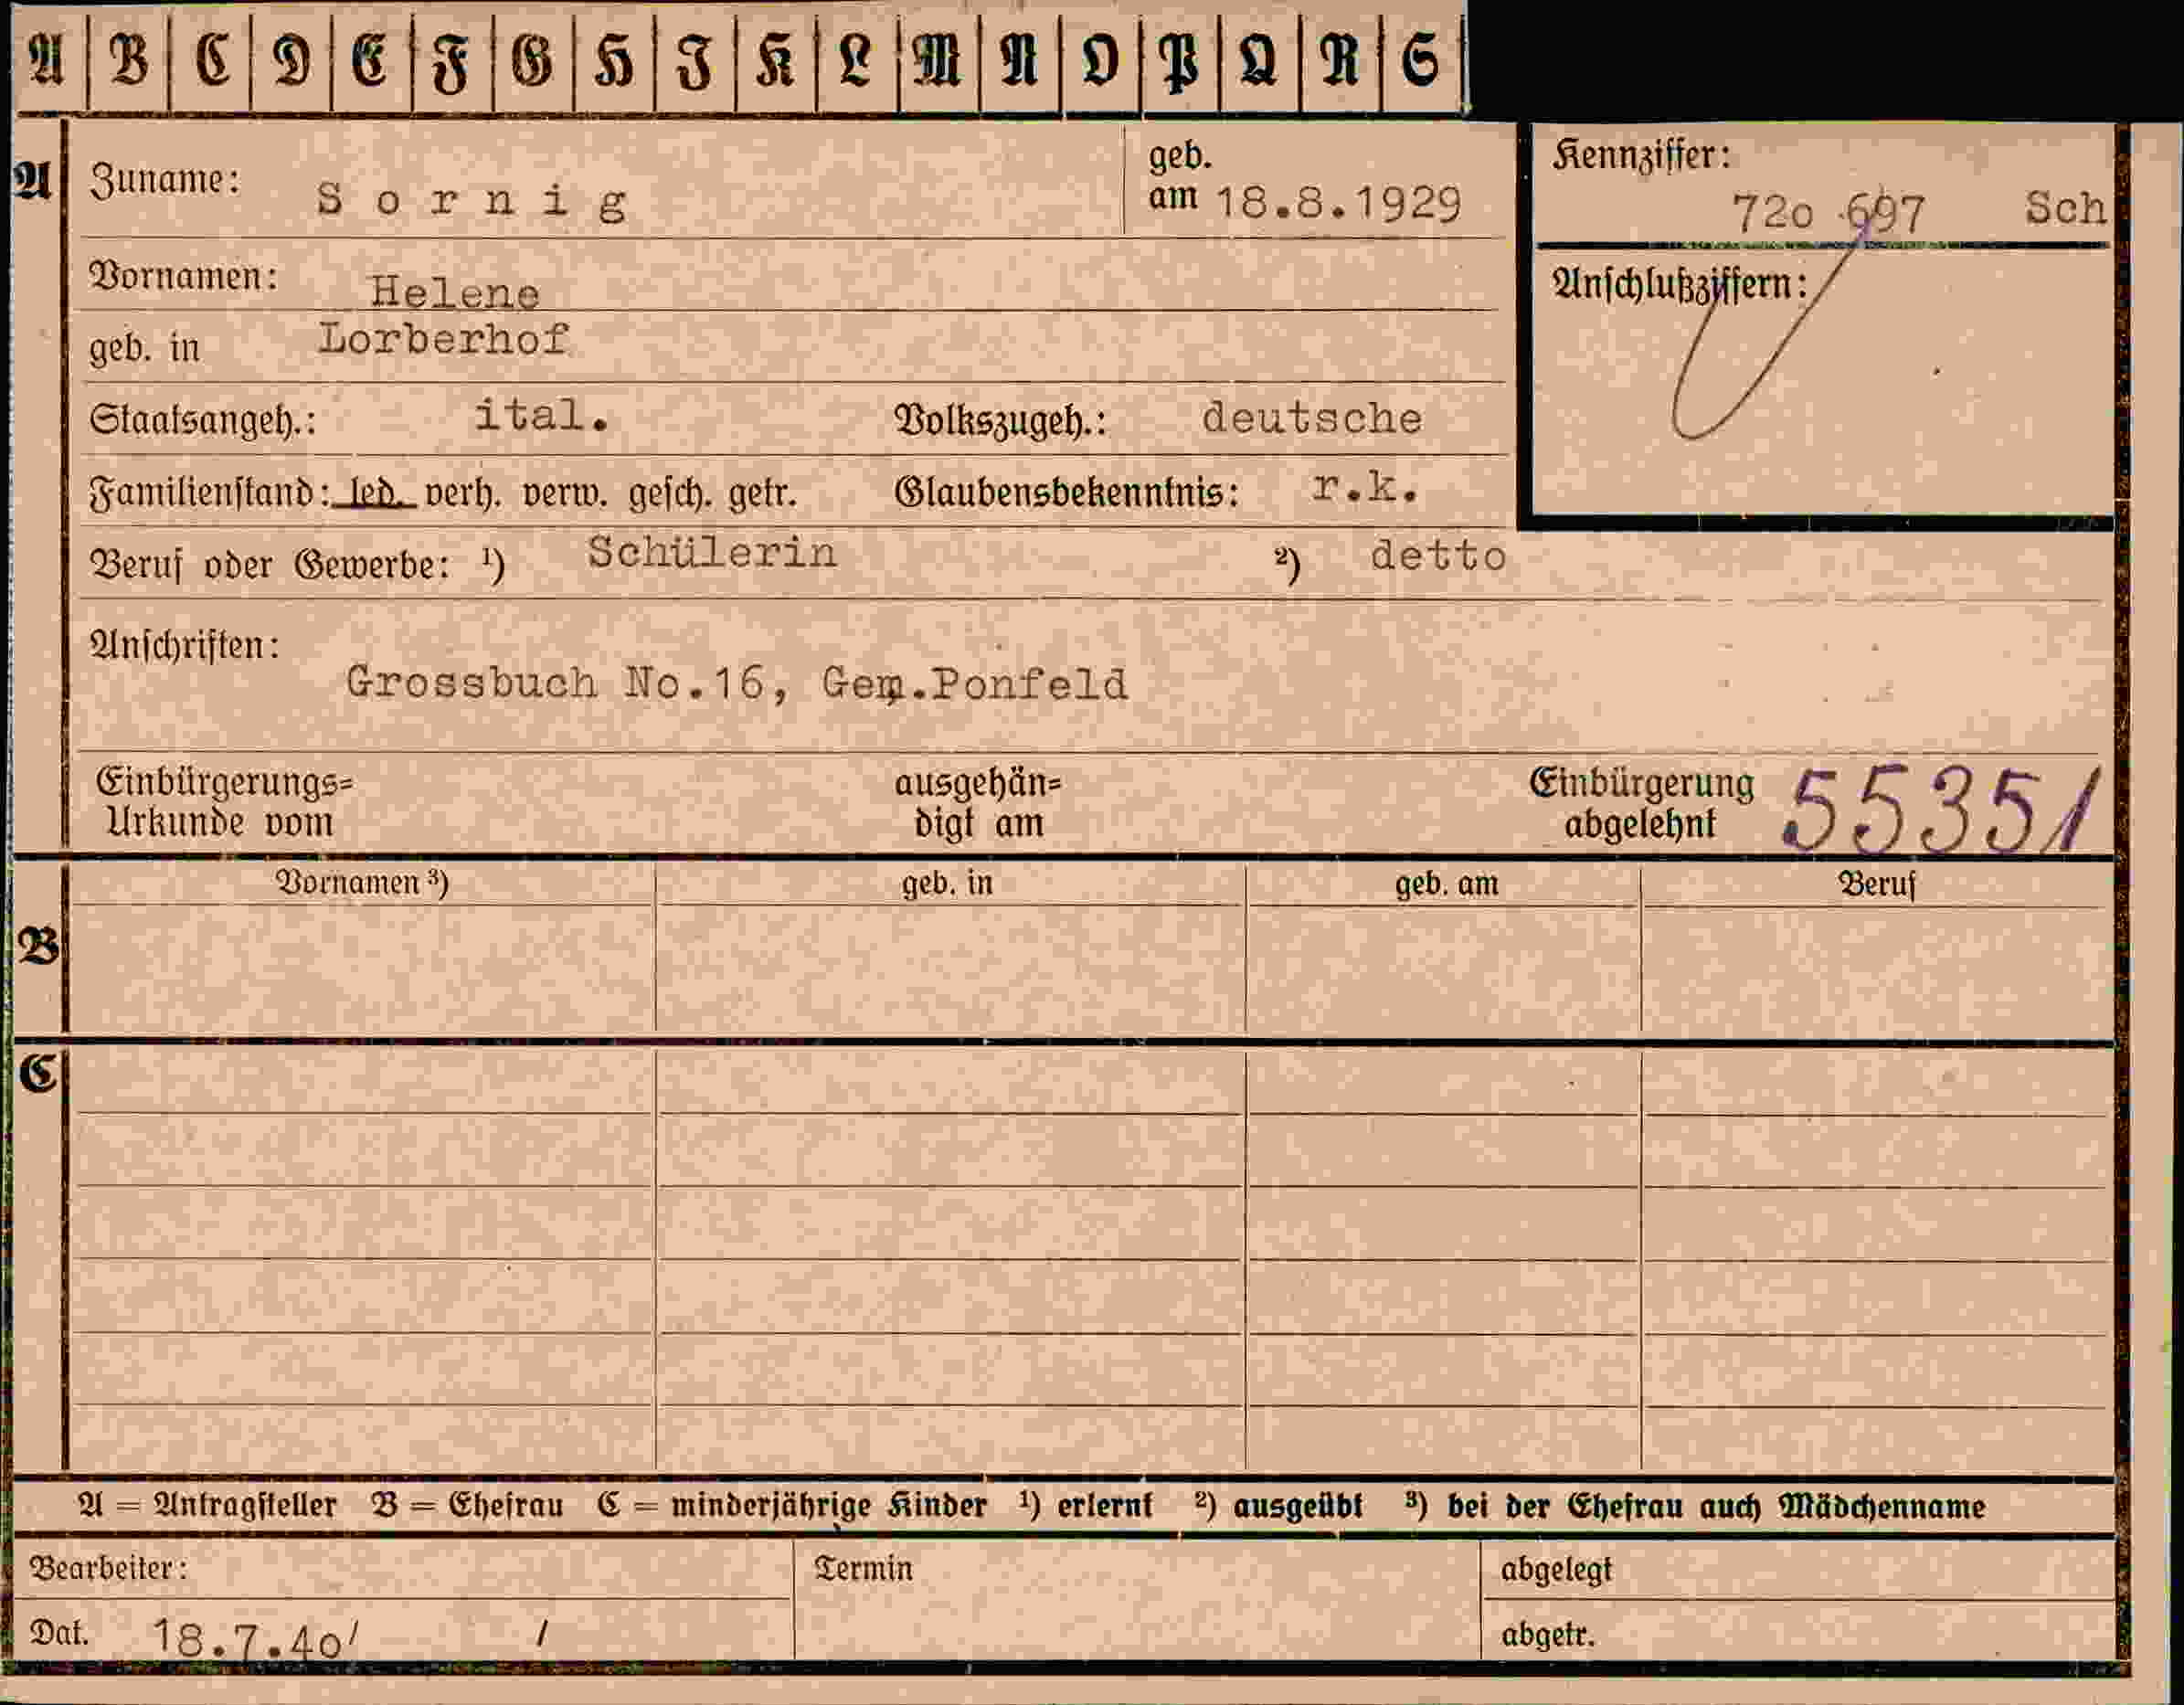 A B C D E F G H I K L M N O P Q R S
A Zuname: Sornig geb. am 18.8.1929
Kennziffer: 72o 697 Sch
Vornamen: Helene
Anschlußziffern:
geb. in Lorberhof
Staatsangeh.: ital. Volkszugeh.: deutsche
Familienstand: led. verh. verw. gesch. getr. Glaubensbekenntnis: r.k.
Beruf oder Gewerbe: ¹) Schülerin ²) detto
Anschriften:
Grossbuch No.16, Gem.Ponfeld
Einbürgerungs= ausgehän= Einbürgerung 55351
Urkunde vom digt am abgelehnt
Vornamen ³) geb. in geb. am Beruf
B
C
A = Antragsteller B = Ehefrau C = minderjährige Kinder ¹) erlernt ²) ausgeübt ³) bei der Ehefrau auch Mädchenname
Bearbeiter: Termin abgelegt
Dat. 18.7.4o/ / abgetr.